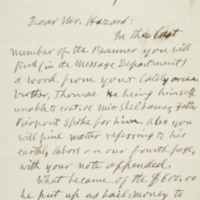 Dear Mr. Hazard:
In the last
number of the Banner you will
find (in the Message Department)
a word from your lately arisen
brother, Thomas. He being himself
unable to control Miss Shelhamer, John
Pierpont spoke for him. Also you
will find matter referring to his
earthly labors on our fourth page,
with your note appended.
What became of the $600.00
he put up as bail-money to